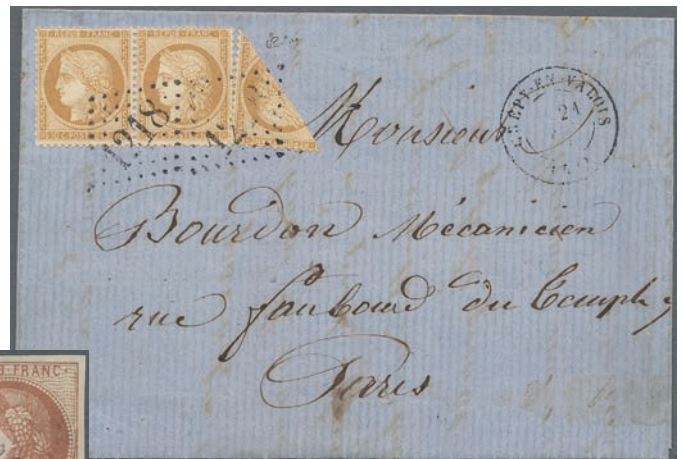 REPUB·FRANC REPUB·FRANC
10·C·POSTES
1218 12
CRÉPY-EN-VALOIS
21
Monsieur
Bourdon Mécanicien
rue faubourd du Temple 9
Paris
B·FRANC·